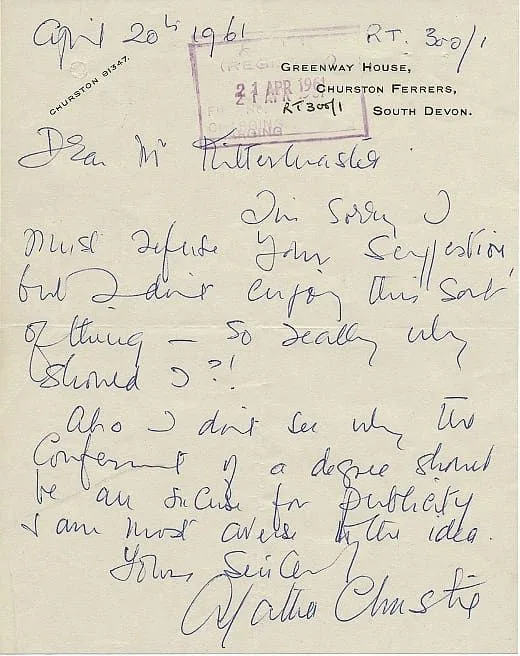 April 20th 1961
RT. 300/1
CHURSTON 81347.
GREENWAY HOUSE,
CHURSTON FERRERS,
SOUTH DEVON.
(REGI
21 APR 1961
RT300/1
Dear Mr
I'm sorry I
must refuse your suggestion,
but I don't enjoy this sort
of thing — So really why
should I?!
Also I don't see why the
Conferment of a degree should
be an excuse for publicity
I am most averse to the idea.
Yours Sincerely
Agatha Christie